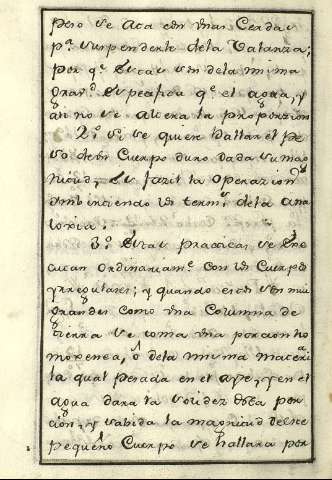 pero se ata con unas Cerdas
pa. suspenderle dela Balanza;
por qe. estas son dela misma
gravd. espesifica qe. el agua, y
asi no se altera la proporzion
2.o Si se quiere hallar el pe
so deun Cuerpo duro dada su mag
nitud, es fazil la Operazion
imbirtiendo los termos. dela ana
loxia.
3.o Estas practicas se exe
cutan ordinariamte. con los Cuerpos
yrregulares; y quando estos son mui
grandes como una Columna de
tierra se toma una porcion ho
moxenea, ô dela misma materia
la qual pesada en el ayre, y en el
agua dara la solidez desta por
cion, y sabida la magnitud deeste
pequeño Cuerpo se hallara por